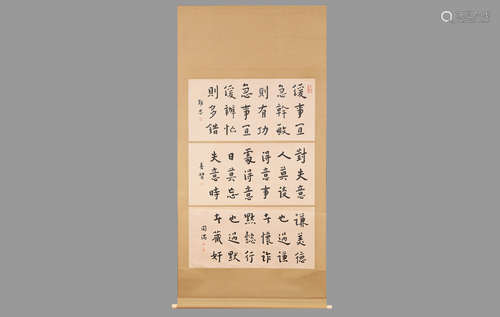 緩事宜
急幹敏
則有功
急事宜
緩辦忙
則多錯
對失意
人莫談
得意事
處得意
日莫忘
失意時
謙美德
也過謙
者懷詐
默懿行
也過默
者藏奸